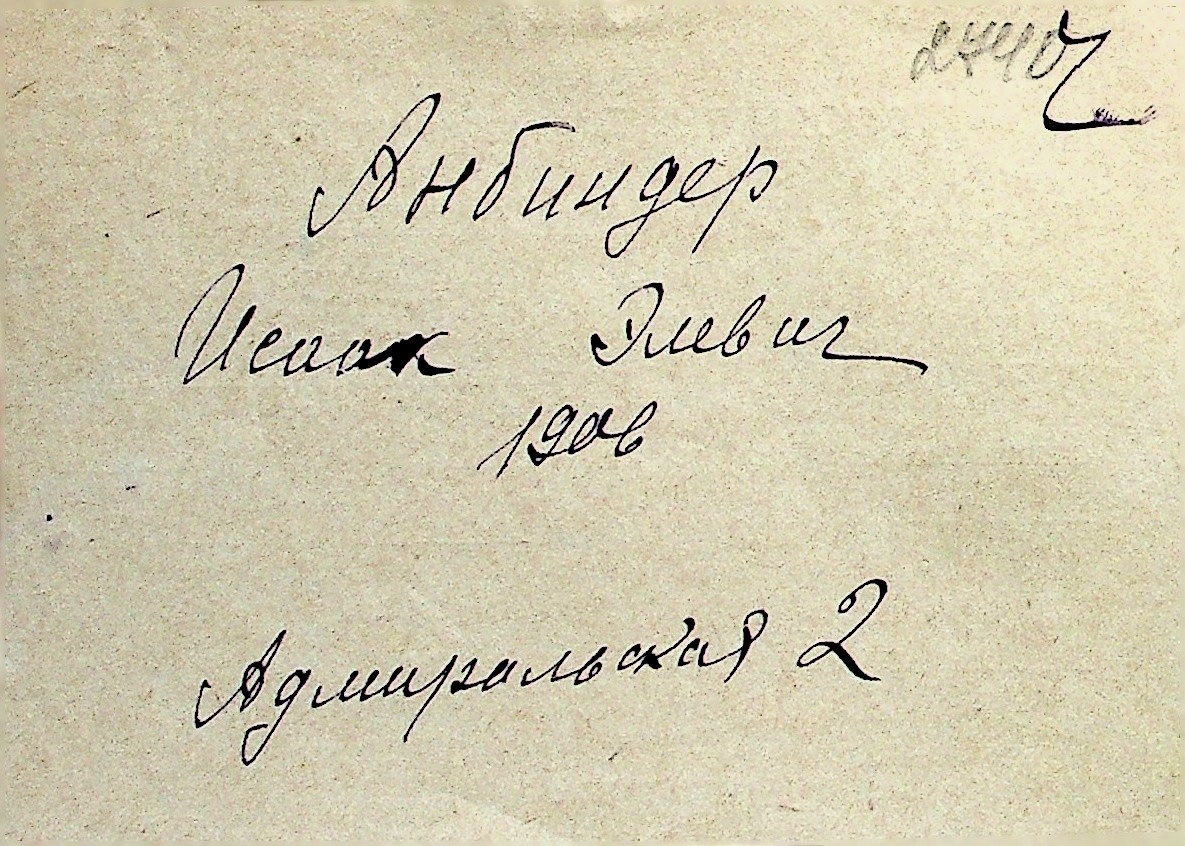 2440
Анбиндер
Исаак Элевич
1906
Адмиральская 2